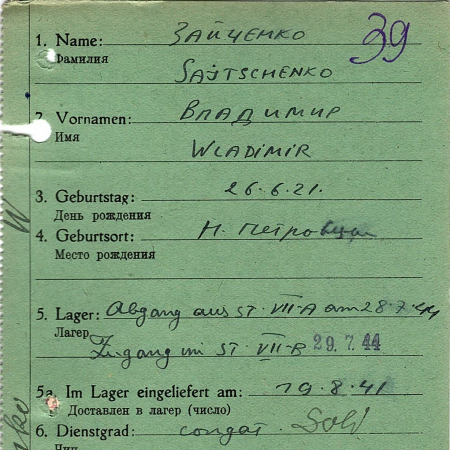 39
1. Name: ЗАЙЧЕНКО
Фамилия
SAJTSCHENKO
2. Vornamen: ВЛАДИМИР
Имя
WLADIMIR
3. Geburtstag: 26.6.21.
День рождения
4. Geburtsort: Н. Петровцы
Место рождения
5. Lager: Abgang aus ST. VII-A am 28.7.44
Лагер
Zugang im ST. VII-B 29.7.44
5a. Im Lager eingeliefert am: 19.8.41
Доставлен в лагер (число)
6. Dienstgrad: солдат. Sold
Чин